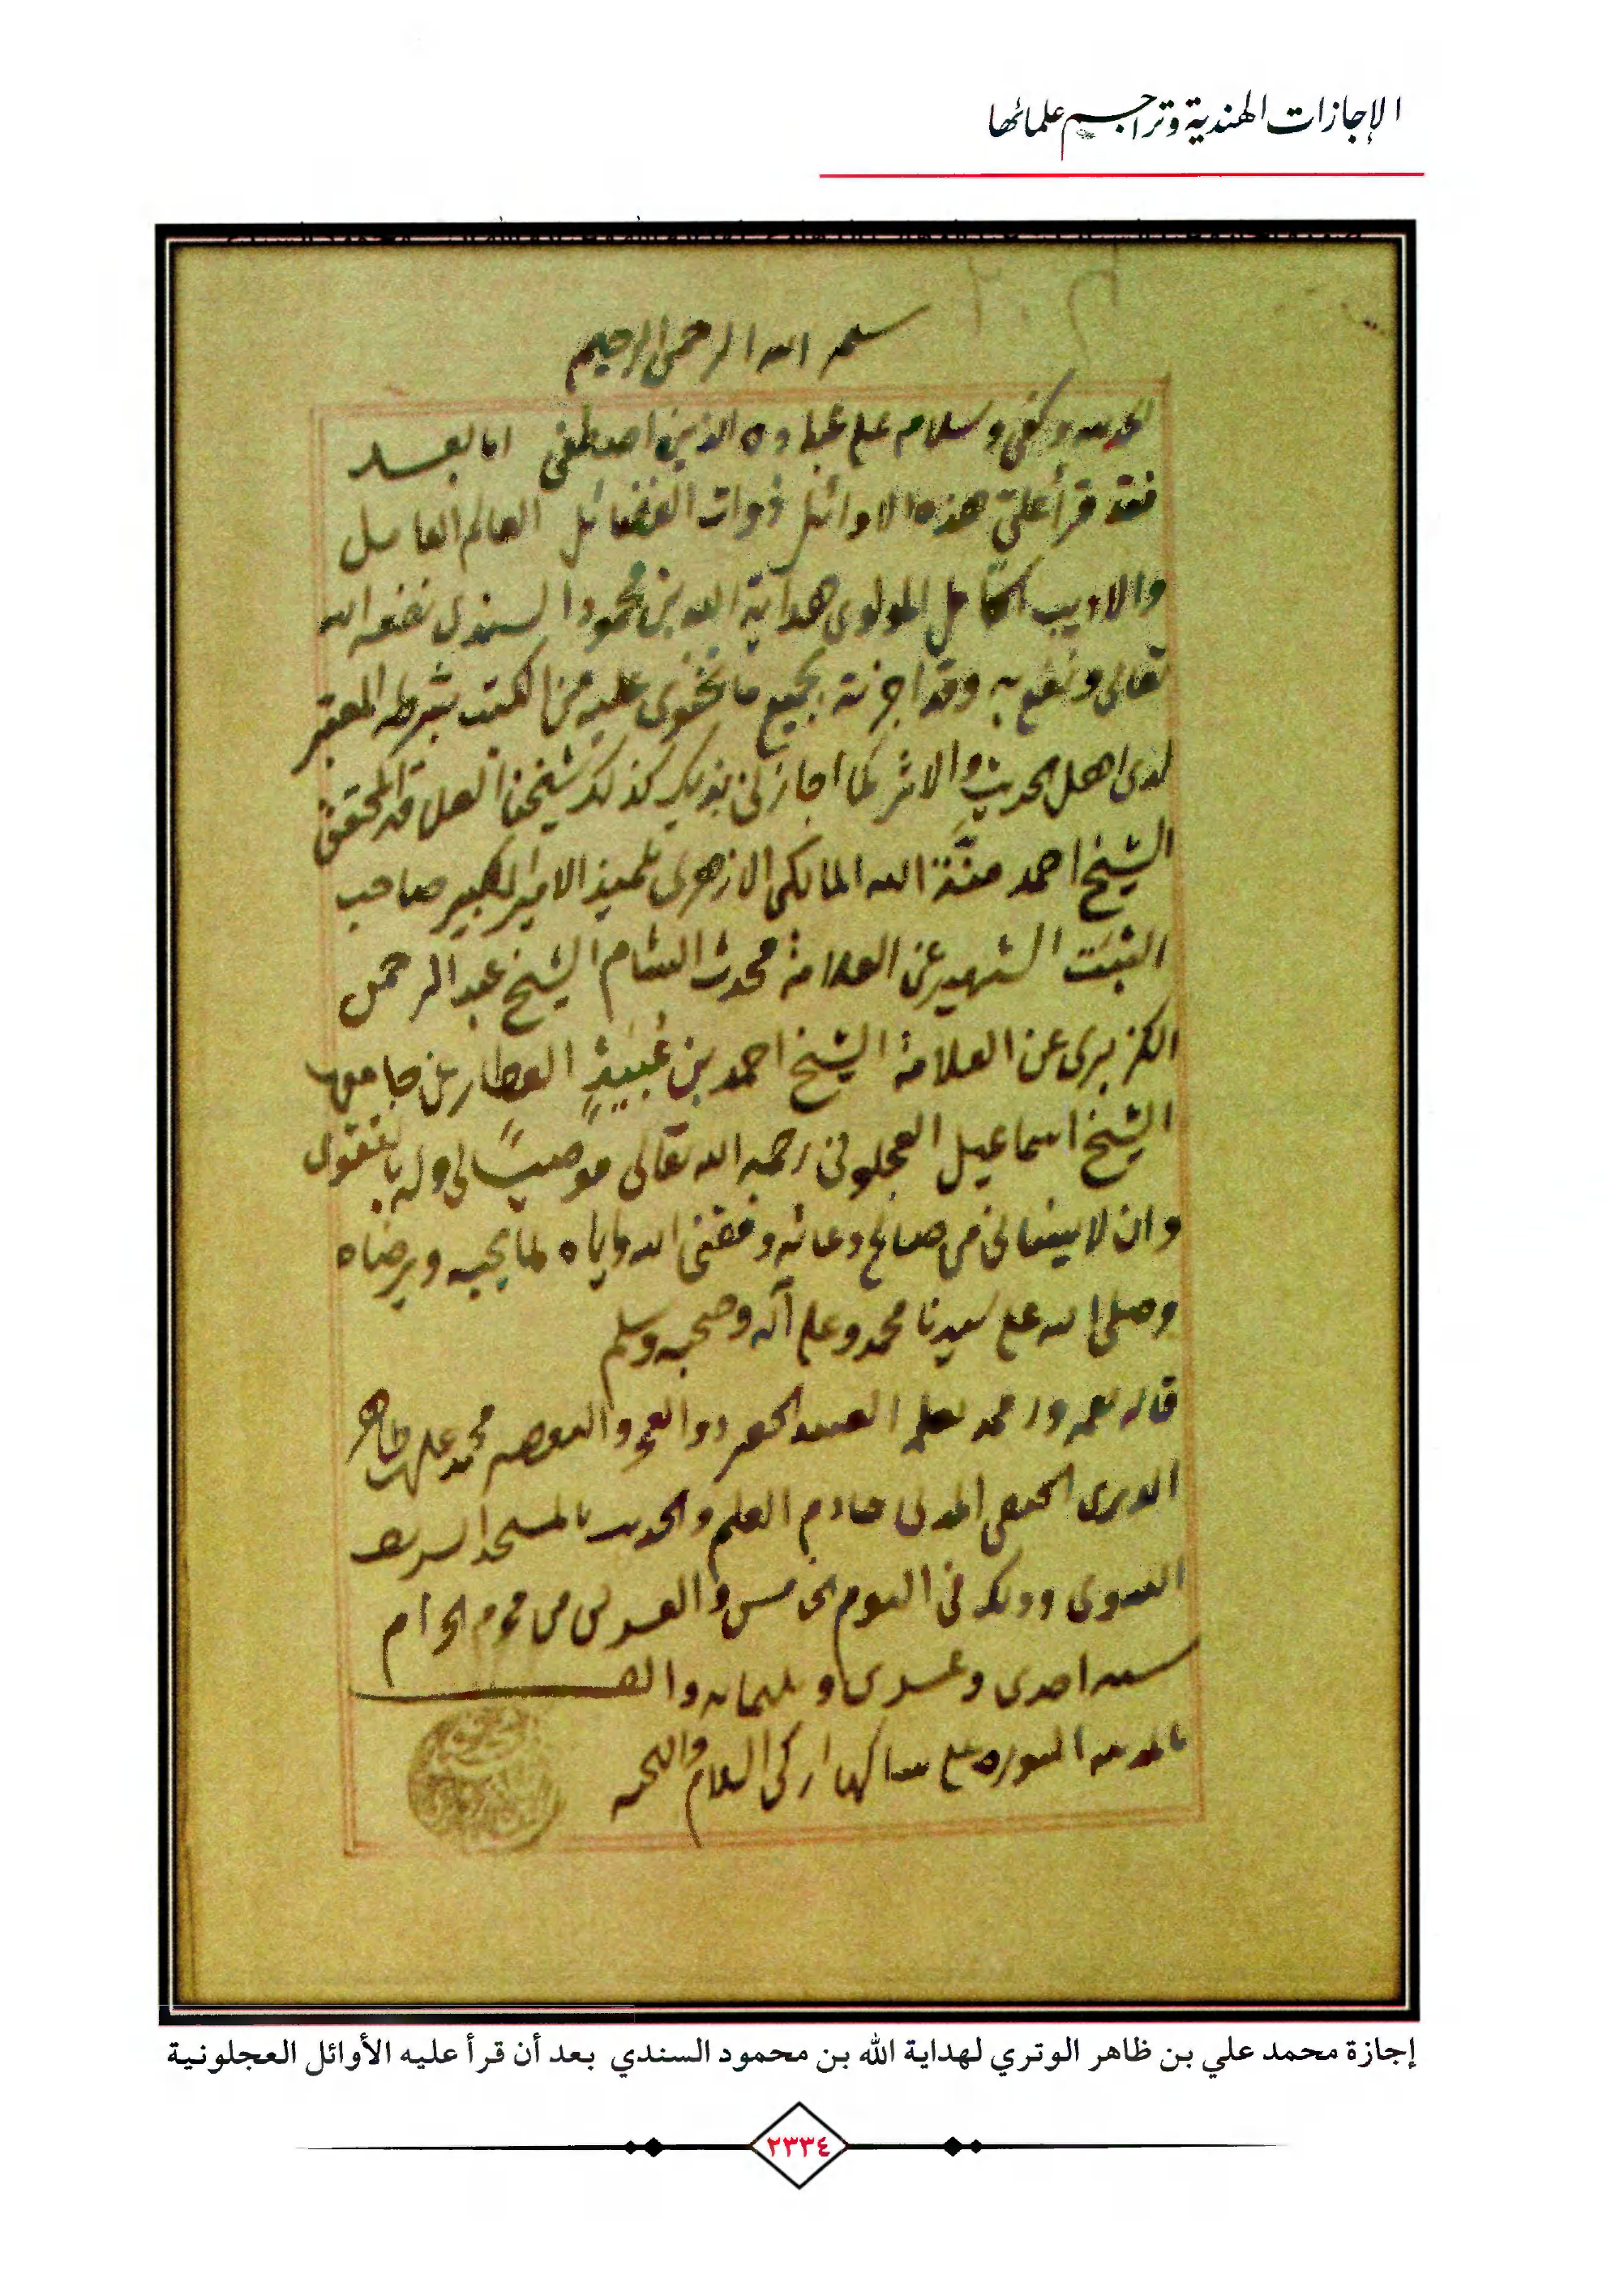 الإجازات الهندية وتراجم علمائها
بسم الله الرحمن الرحيم
الحمد لله وكفى وسلام على عباده الذين اصطفى اما بعد
فقد قرأ علي هذه الاوائل ذوات الفضائل العالم العامل
والاديب الكامل المولوى هداية الله بن محمود السندى نفعه الله
تعالى ونفع به وقد اجزته بجميع ما تحتوى عليه من الكتب بشرطه المعتبر
لدى اهل الحديث والاثر كما اجازنى بذلك كذلك شيخنا العلامة المحقق
الشيخ احمد منة الله المالكى الازهرى تلميذ الامير الكبير صاحب
الثبت الشهير عن العلامة محدث الشام الشيخ عبد الرحمن
الكزبرى عن العلامة الشيخ احمد بن عُبَيدٍ العطار عن جامعها
الشيخ اسماعيل العجلونى رحمه الله تعالى موصيًا لى وله بالتقوى
وان لا ينسانى من صالح دعائه وفقنى الله واياه لما يحبه ويرضاه
وصلى الله على سيدنا محمد وعلى آله وصحبه وسلم
قاله بفمه ورقمه بقلمه العبد الحقير ذو العجز والتقصير محمد على بن ظاهر
الوترى الحنفى المدنى خادم العلم والحديث بالمسجد الشريف
النبوى وذلك فى اليوم الخامس والعشرين من محرم الحرام
سنة احدى وعشرين وثلثمائة والف
بالمدينة المنورة على ساكنها ازكى السلام والتحية
إجازة محمد علي بن ظاهر الوتري لهداية الله بن محمود السندي بعد أن قرأ عليه الأوائل العجلونية
٢٣٣٤